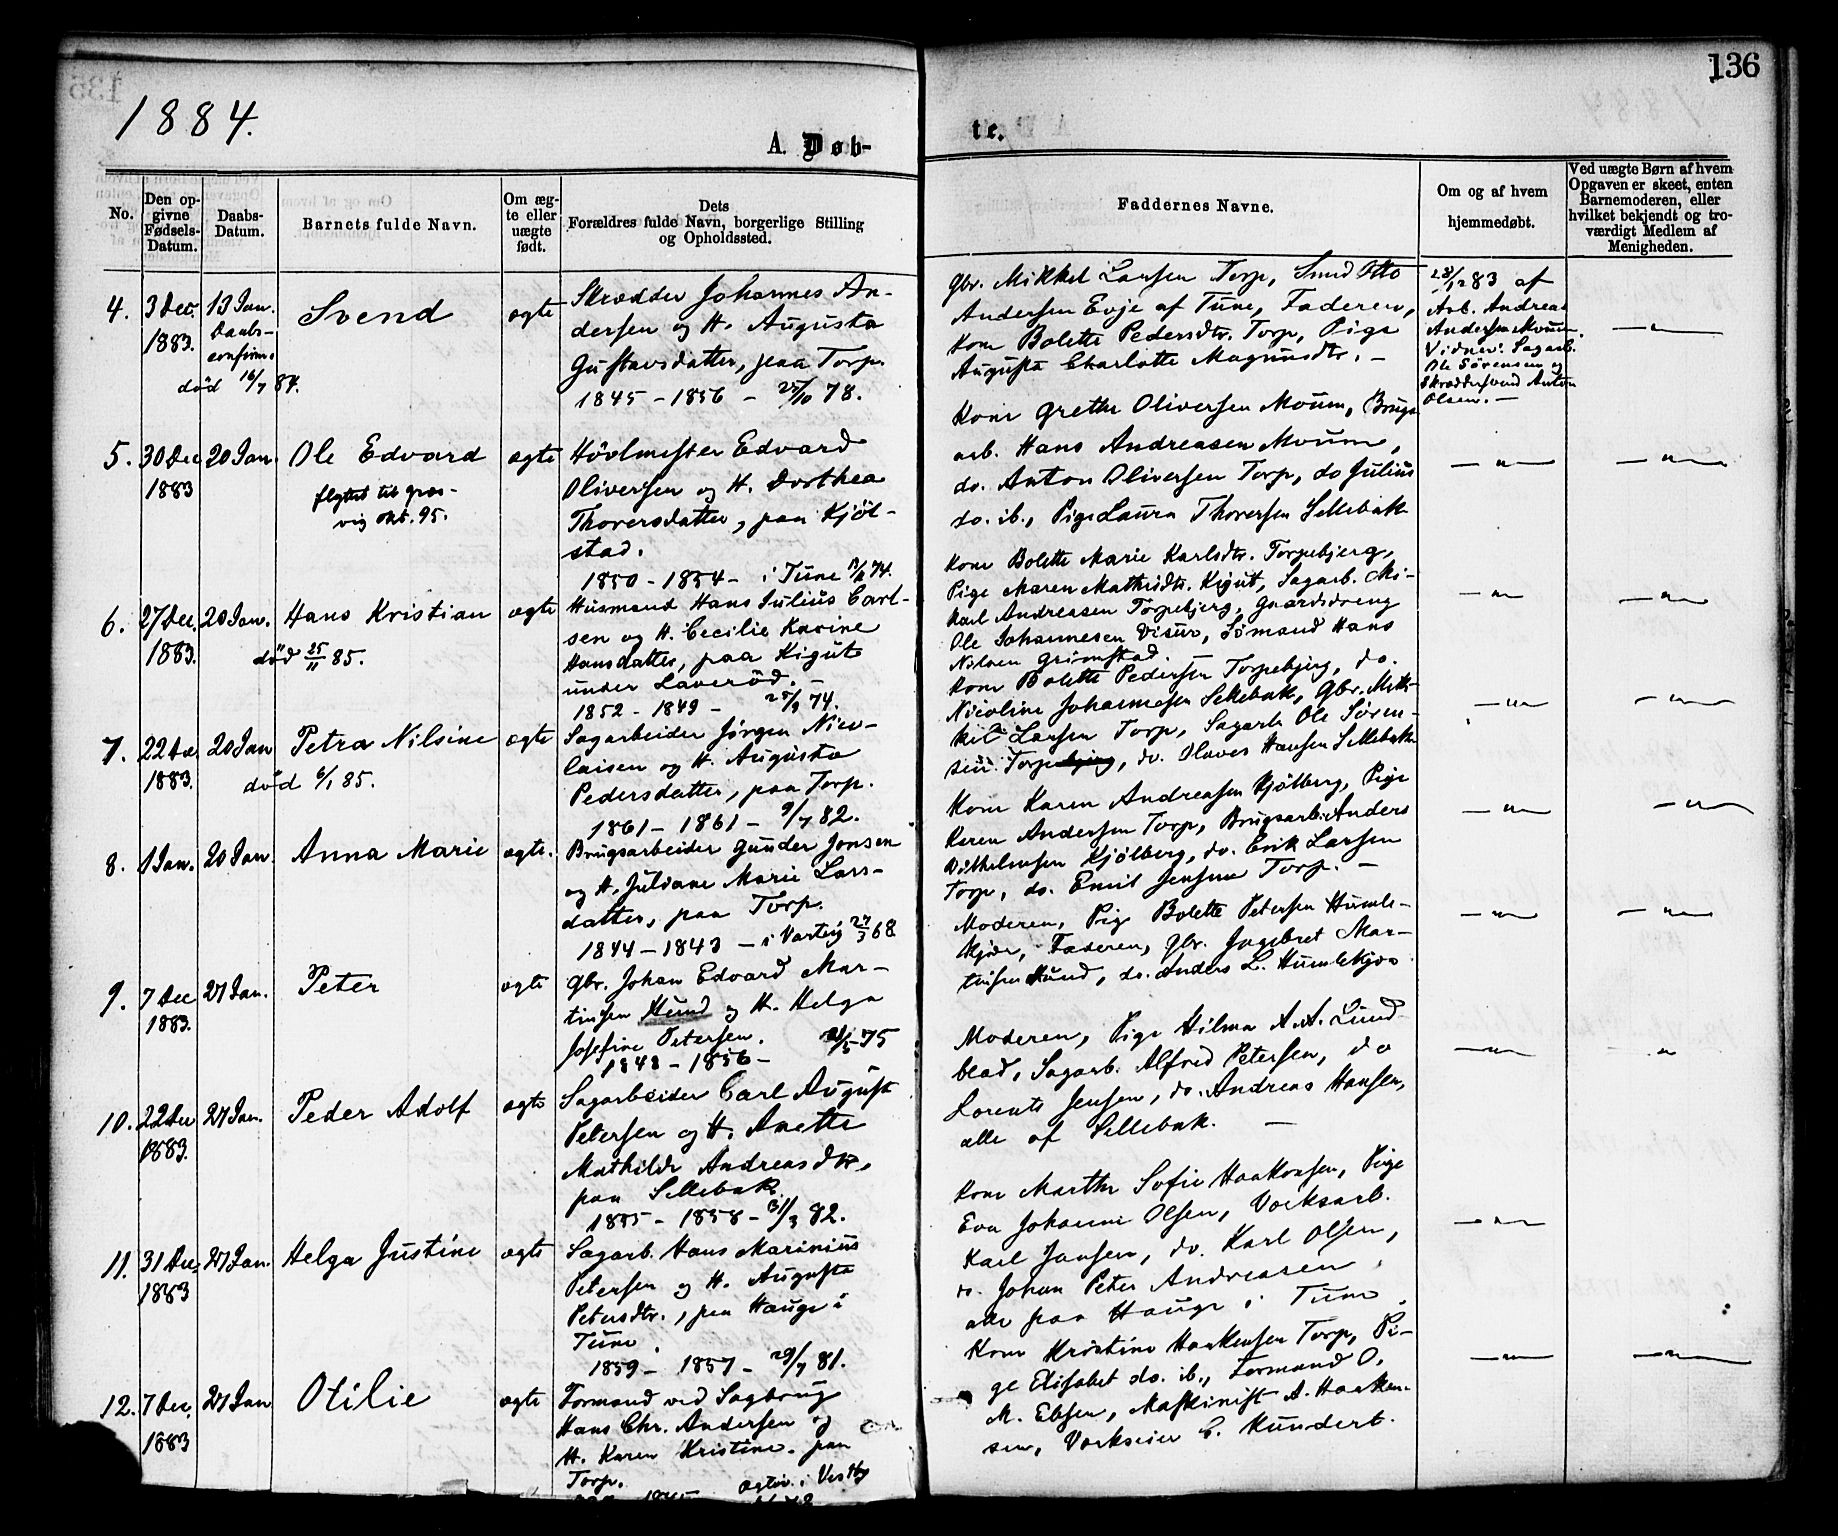 136
1884.
A. Døb-
te.
No.
Den op-
givne
Fødsels-
Datum.
Daabs-
Datum.
Barnets fulde Navn.
Om æg-
te eller
uægte
født.
Dets
Forældres fulde Navn, borgerlige Stilling
og Opholdssted.
Faddernes Navne.
Om og af hvem
hjemmedøbt.
Ved uægte Børn af hvem
Opgaven er skeet, enten
Barnemoderen, eller
hvilket bekjendt og tro-
værdigt Medlem af
Menigheden.
4. 3 Dec. 1883.
13 Jan.
Daabs-
confirm.
Svend
død 16/7 84.
ægte
Skrædder Johannes An-
dersen og H. Augusta
Gustavsdatter, paa Torp.
1845 - 1856 - 25/10 78.
Gbr. Mikkel Larsen Torp, Smed Otto
Andersen Evje af Tune, Faderen,
Kone Bolette Pedersdtr. Torp, Pige
Augusta Charlotte Magnusdtr. -
28/12 83 af
Arb. Andreas
Andersen Moum.
Vidner: Sagarb.
Ole Sørensen og
Skræddersvend Anton
Olsen. -
5. 30 Dec 1883
20 Jan.
Ole Edvard
flyttet til Græs-
vig Okt. 95.
ægte
Høvlmester Edvard
Oliversen og H. Dorthea
Thoversdatter, paa Kjøl-
stad.
1850 - 1854 - i Tune 74.
Kone Grethe Oliversen Moum, Brugs
arb. Hans Andreasen Moum,
do. Anton Oliversen Torp, do Julius
do. ib., Pige Laura Thoversen Sellebak
6. 27 Dec. 1883.
20 Jan.
Hans Kristian
død 25/11 85.
ægte
Husmand Hans Julius Carl-
sen og H. Cecilie Karine
Hansdatter, paa Kigut
under Laverød. -
1852 - 1849 - 25/9 74.
Kone Bolette Marie Karlsdtr. Torpebjerg,
Pige Maren Mathisdtr. Kigut, Sagarb. Mi-
kael Andreasen Torpebjerg, Gaardsdreng
Ole Johannesen Visur, Sømand Hans
Nilsen Grimstad.
7. 22 Dec 1883.
20 Jan
Petra Nilsine
død 6/1 85.
ægte
Sagarbeider Jørgen Nico-
laisen og H. Augusta
Pedersdatter, paa Torp.
1861 - 1861 - 9/7 82.
Kone Bolette Pedersen Torpebjerg, do.
Nicoline Johannesen Sellebak, Gbr. Mik-
kel Larsen Torp, Sagarb Ole Søren-
sen Torpebjerg, do. Olaves Hansen Sellebak
8. 1 Jan.
20 Jan.
Anna Marie
ægte.
Brugsarbeider Gunder Jonsen
og H. Juliane Marie Lars-
datter, paa Torp.
1844 - 1843 - i Varteig 27/3 68
Kone Karen Andreasen Kjølberg, Pige
Karen Andersen Torp, Brugsarb. Anders
Vilhelmsen Kjølberg, do. Erik Larsen
Torp, do. Emil Jensen Torp. -
9. 7 Dec 1883.
27 Jan.
Peter
ægte
Gbr. Johan Edvard Mar-
tinsen Hund og H. Helga
Josefine Petersen.
1848 - 1856 - 75
Moderen, Pige Bolette Petersen Humle-
kjær, Faderen, Gbr. Ingebret Mar-
tinsen Hund, do. Anders L. Humlekjær
10. 22 Dec 1883.
27 Jan.
Peder Adolf
ægte
Sagarbeider Carl August
Petersen og H. Anette
Mathilde Andreasdtr.
paa Sellebak.
1855 - 1858 - 31/3 82.
Moderen, Pige Hilma A. A. Lund-
blad, Sagarb. Alfred Petersen, do
Lorents Jensen, do. Andreas Hansen,
alle af Sellebak. -
11. 31 Dec. 1883
27 Jan.
Helga Justine
ægte
Sagarb. Hans Marinius
Petersen og H. Augusta
Petersdtr., paa Hauge i
Tune.
1859 - 1857 - 29/7 81.
Kone Marthe Sofie Haakonsen, Pige
Eva Johanne Olsen, Værksarb.
Karl Jansen, do. Karl Olsen,
do. Johan Peter Andreasen,
alle paa Hauge i Tune.
12. 7 Dec. 1883
27 Jan
Otilie
ægte
Formand ved Sagbrug
Hans Chr. Andersen og
H. Karen Kristine. paa
Torp.
Kone Kristine Haakensen Torp, Pi-
ge Elisabet do. ib., Formand O.
M. Ebsen, Maskinist A. Haaken-
sen, Værkseier C. Kundert.